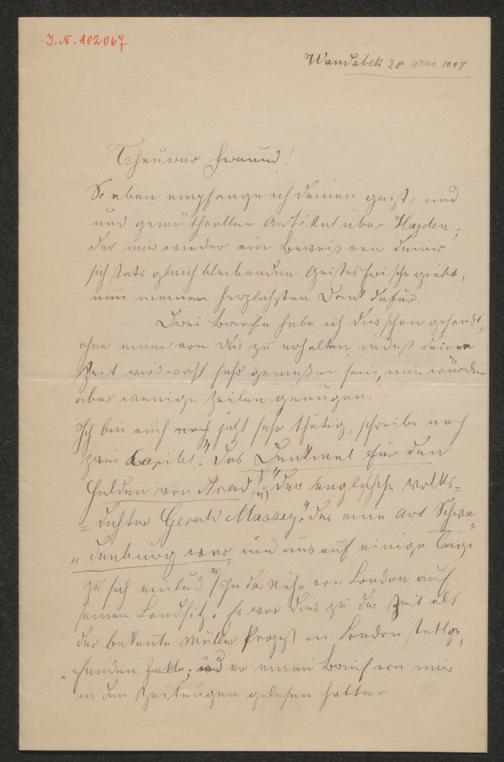 J.N. 102067
Wandsbek 28 1897
Theurer Freund!
Soeben empfange ich deinen geist- und
und gemüthvollen Artikel über Haydn,
der mir wieder ein Beweis von deiner
sich stets gleich bleibenden Geistesfrische giebt,
nimm meinen herzlichsten Dank dafür.
Drei Briefe habe ich Dir schon gesandt,
ohne einen von Dir zu erhalten, indeß deine
Zeit wird wohl sehr gemessen sein, mir würden
aber wenige Zeilen genügen.
Ich bin auch noch jetzt sehr thätig, schreibe noch
zwei Kapitel. "Das Denkmal für den
Helden von Arad" u) "der englische Volks-
dichter Gerald Massey" der eine Art
war und uns auf einige Tage
zu sich einlud in der Nähe von London auf
seinen Landsitz. Es war dies zu der Zeit als
der bekannte Müller Prozeß in London stattge-
funden hatte, und er einen Brief von mir
in den Zeitungen gelesen hatte